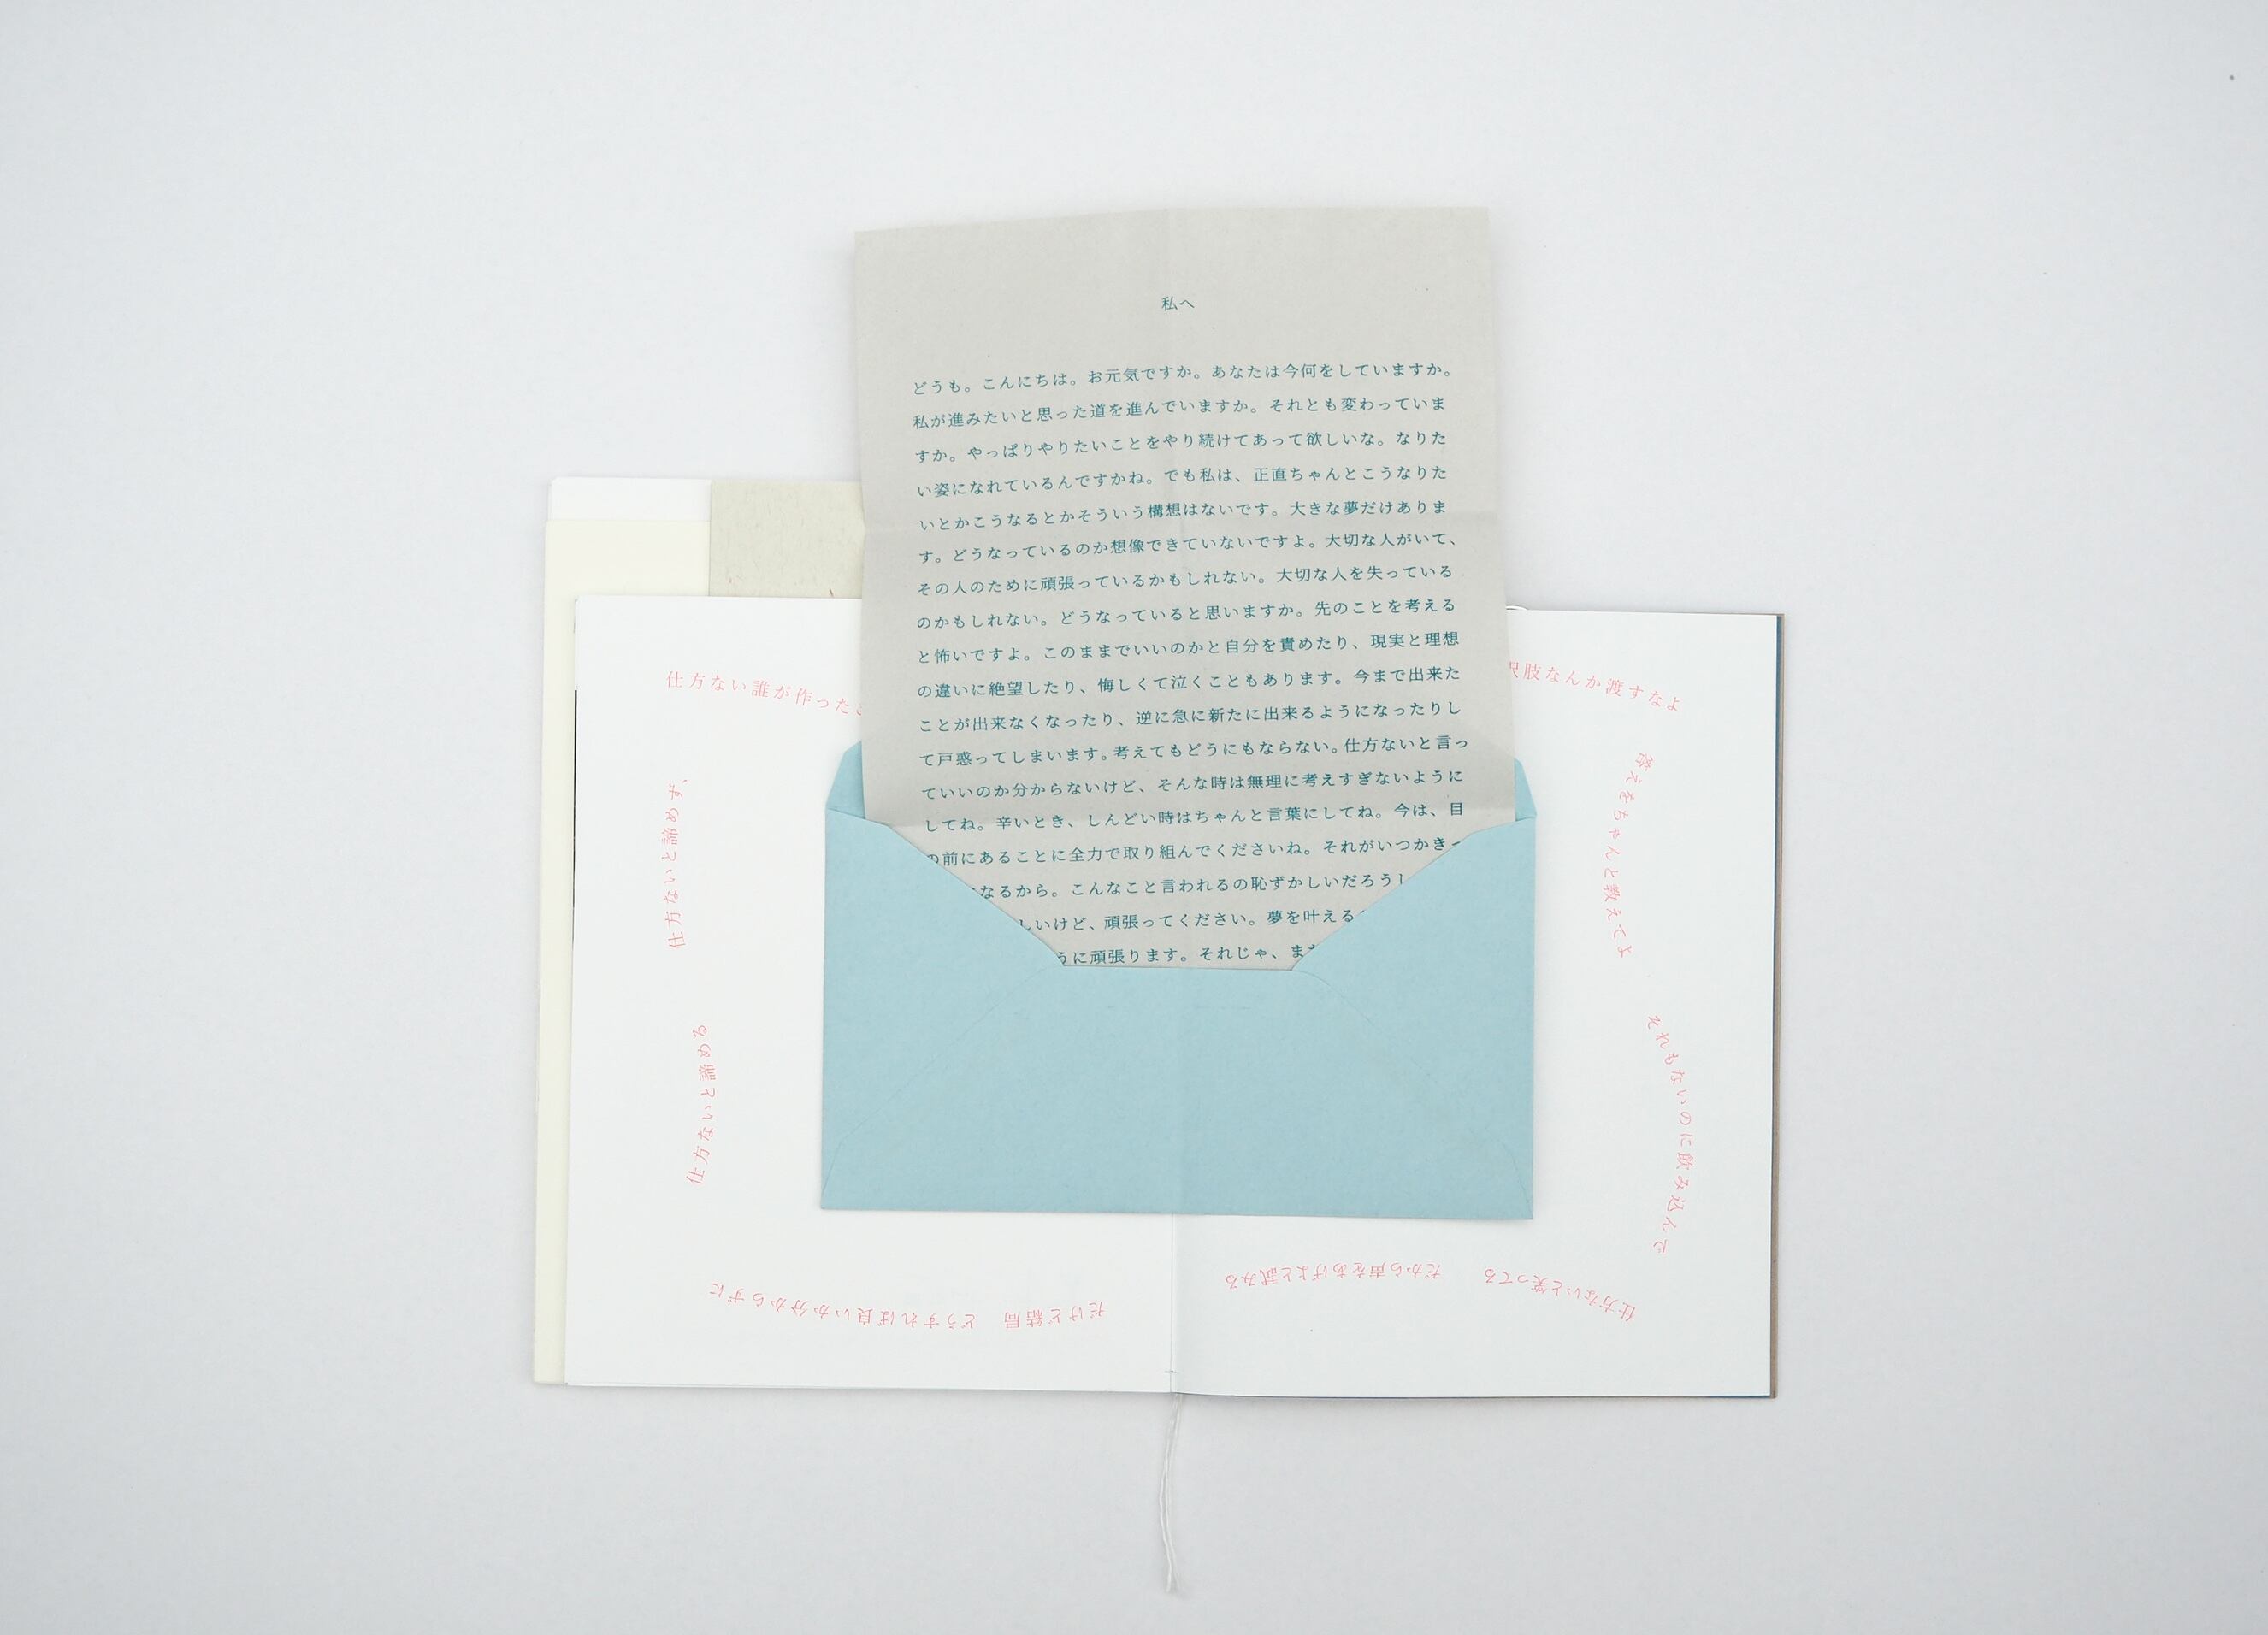 私へ
どうも。こんにちは。お元気ですか。あなたは今何をしていますか。
私が進みたいと思った道を進んでいますか。それとも変わっていま
すか。やっぱりやりたいことをやり続けてあって欲しいな。なりた
い姿になれているんですかね。でも私は、正直ちゃんとこうなりた
いとかこうなるとかそういう構想はないです。大きな夢だけありま
す。どうなっているのか想像できていないですよ。大切な人がいて、
その人のために頑張っているかもしれない。大切な人を失っている
のかもしれない。どうなっていると思いますか。先のことを考える
と怖いですよ。このままでいいのかと自分を責めたり、現実と理想
の違いに絶望したり、悔しくて泣くこともあります。今まで出来た
ことが出来なくなったり、逆に急に新たに出来るようになったりし
て戸惑ってしまいます。考えてもどうにもならない。仕方ないと言っ
ていいのか分からないけど、そんな時は無理に考えすぎないように
してね。辛いとき、しんどい時はちゃんと言葉にしてね。今は、目
の前にあることに全力で取り組んでくださいね。それがいつかきっ
なるから。こんなこと言われるの恥ずかしいだろうし
しいけど、頑張ってください。夢を叶える
うに頑張ります。それじゃ、ま
仕方ない誰が作った
択肢なんか渡すなよ
答えをちゃんと教えてよ
それもないのに飲み込んで
仕方ないと笑ってる
だから声をあげよと試みる
だけど結局 どうすれば良いか分からずに
仕方ないと諦める
仕方ないと諦めず、